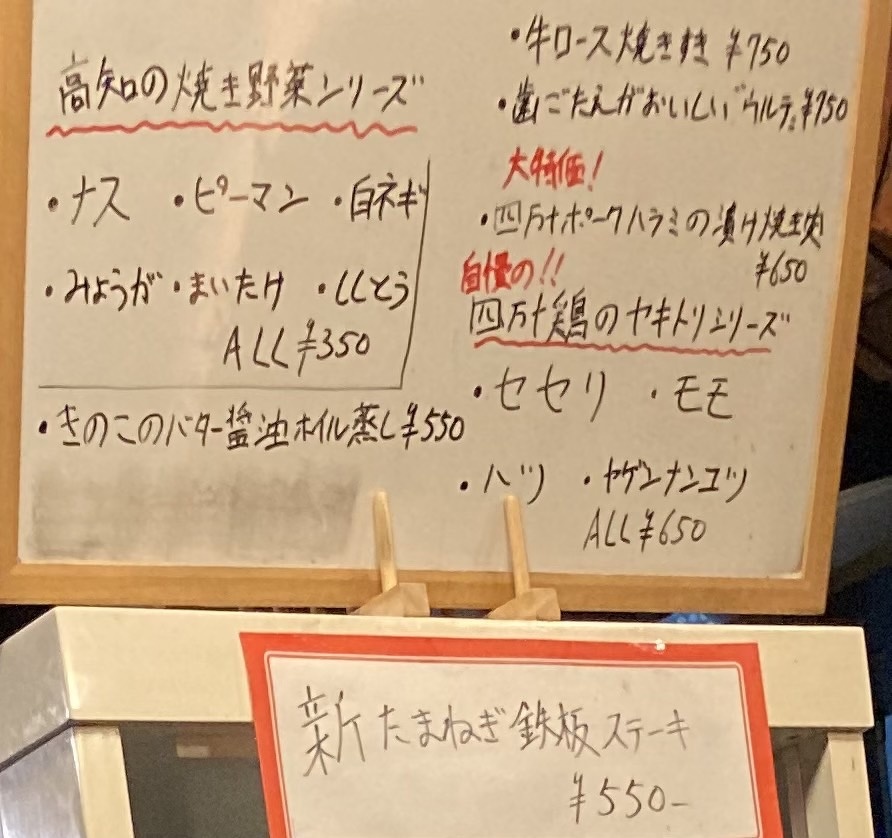 高知の焼き野菜シリーズ
・ナス ・ピーマン ・白ネギ
・みょうが ・まいたけ ・ししとう
ALL ¥350
・きのこのバター醤油ホイル蒸し ¥550
・牛ロース焼きすき ¥750
・歯ごたえがおいしい ウルテ ¥750
大特価!
・四万十ポークハラミの漬け焼き肉
¥650
自慢の!!
四万十鶏のヤキトリシリーズ
・セセリ ・モモ
・ハツ ・ヤゲンナンコツ
ALL ¥650
新たまねぎ鉄板ステーキ
¥550-